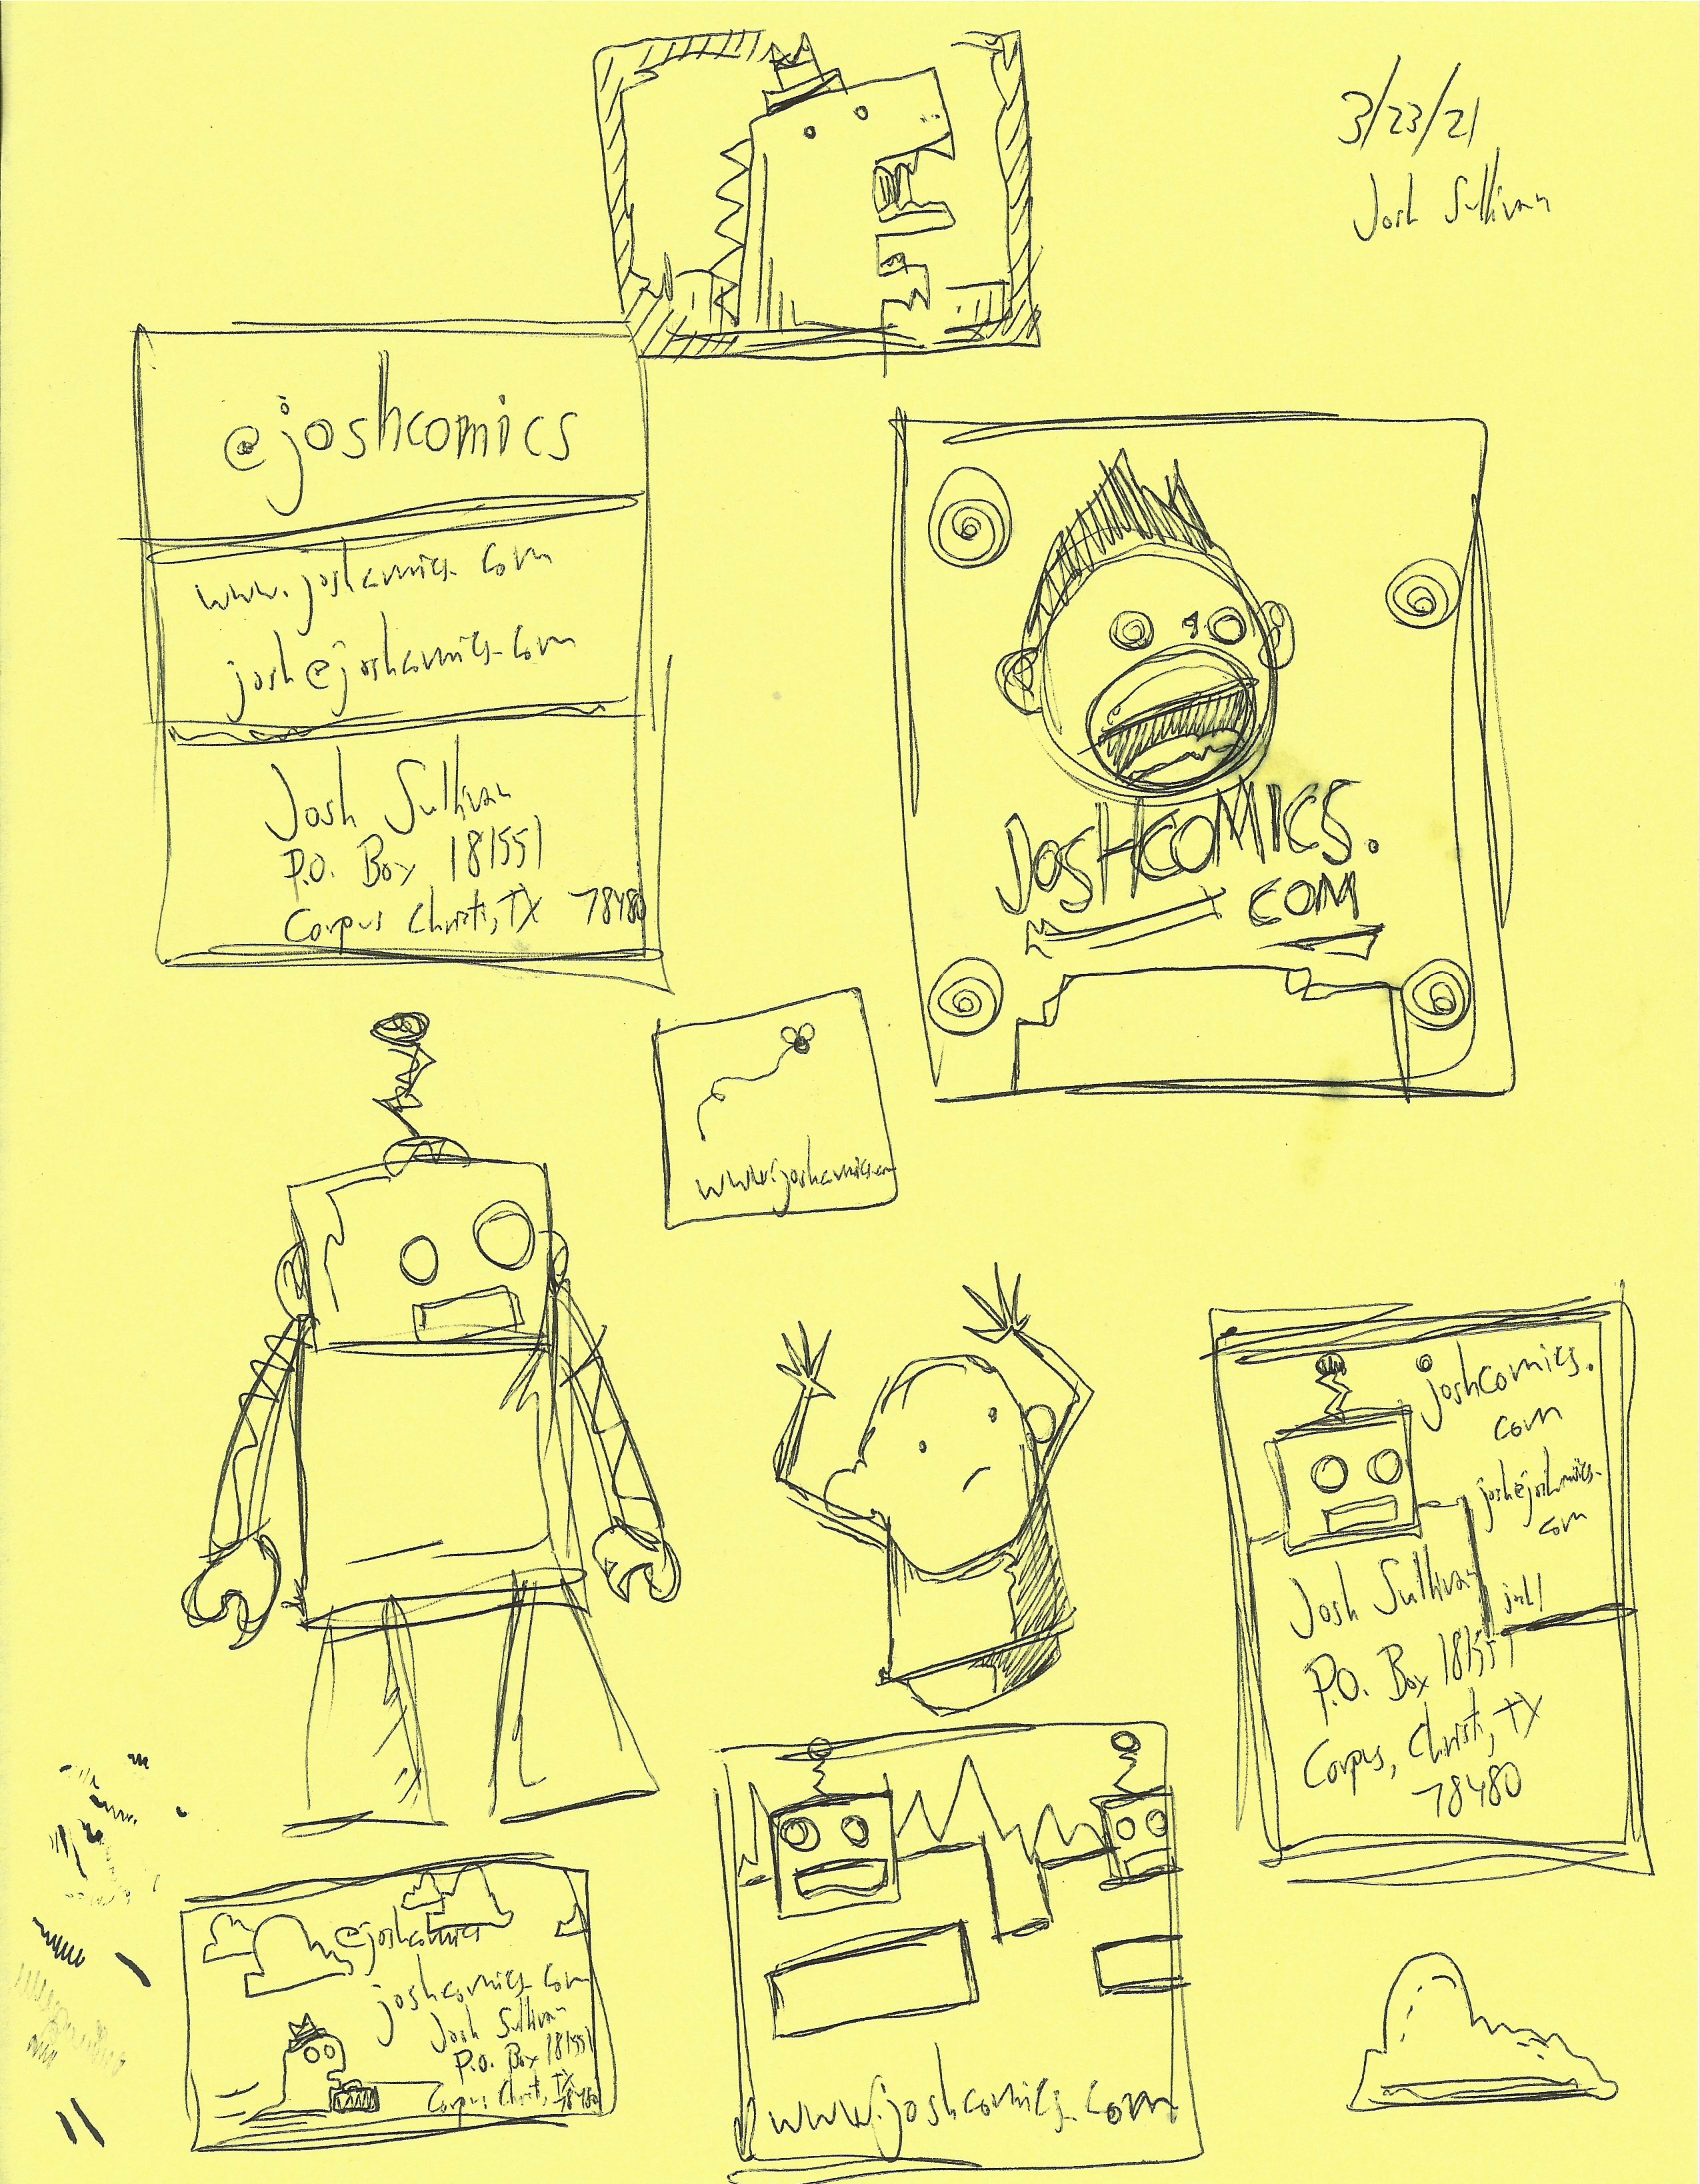 3/23/21
Josh Sullivan
@joshcomics
www.joshcomics.com
josh@joshcomics.com
Josh Sullivan
P.O. Box 181551
Corpus Christi, TX 78480
JOSHCOMICS.
COM
www.joshcomics.com
joshcomics.
com
josh@joshcomics.
com
josh/
Josh Sullivan
P.O. Box 181551
Corpus, Christi, TX
78480
@joshcomics
joshcomics.com
Josh Sullivan
P.O. Box 181551
Corpus Christi, TX
78480
www.joshcomics.com